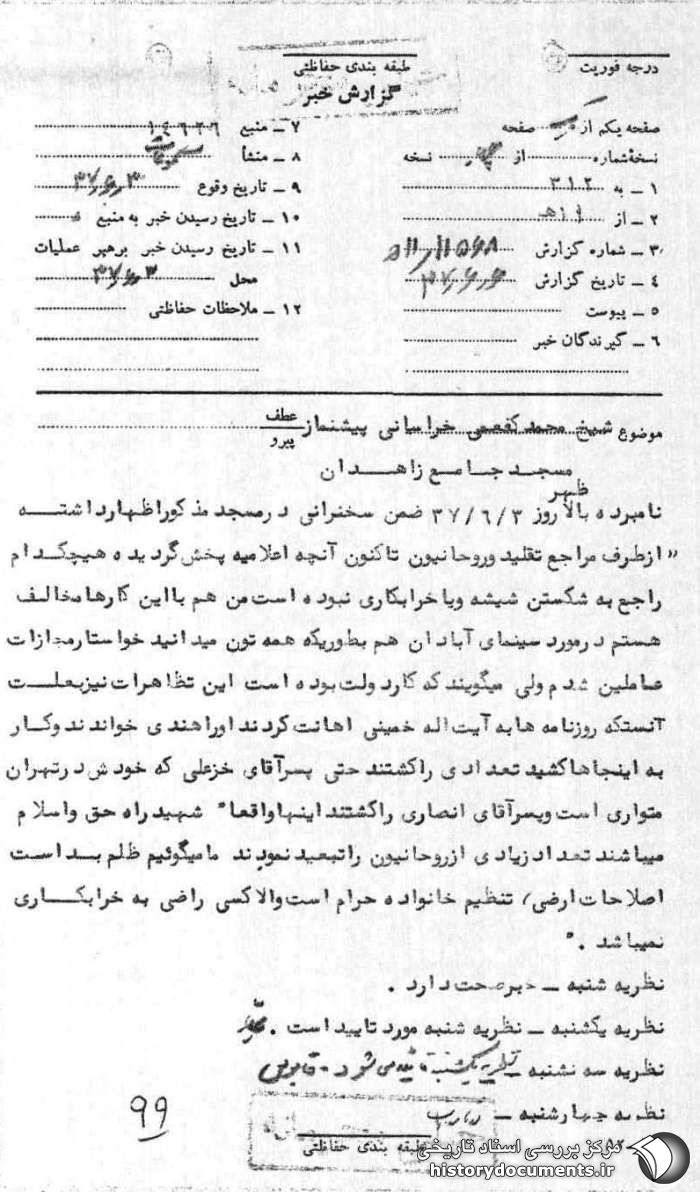 درجه فوریت
طبقه بندی حفاظتی
گزارش خبر
صفحه یکم از صفحه
نسخه شماره از نسخه
۱ ـ به ۳۱۲
۲ ـ از ۱۱ هـ
۳ ـ شماره گزارش
۴ ـ تاریخ گزارش ۳۷/۶/۶
۵ ـ پیوست
۶ ـ گیرندگان خبر
۷ ـ منبع
۸ ـ منشأ
۹ ـ تاریخ وقوع ۳۷/۶/۳
۱۰ ـ تاریخ رسیدن خبر به منبع
۱۱ ـ تاریخ رسیدن خبر برهبر عملیات
محل ۳۷/۶/۳
۱۲ ـ ملاحظات حفاظتی
موضوع شیخ محمد کفعمی خراسانی پیشنماز عطف پیرو
مسجد جامع زاهدان
نامبرده بالا ظهر روز ۳۷/۶/۳ ضمن سخنرانی در مسجد مذکور اظهار داشته
" از طرف مراجع تقلید و روحانیون تاکنون آنچه اعلامیه پخش گردیده هیچکدام
راجع به شکستن شیشه ویا خرابکاری نبوده است من هم با این کارها مخالف
هستم در مورد سینمای آبادان هم بطوریکه همه تون میدانید خواستار مجازات
عاملین شدم ولی میگویند که کار دولت بوده است این تظاهرات نیز بعلت
آنستکه روزنامه ها به آیت اله خمینی اهانت کردند اورا هندی خواندند و کار
به اینجاها کشید تعدادی را کشتند حتی پسر آقای خزعلی که خودش در تهران
متواری است و پسر آقای انصاری را کشتند اینها واقعا" شهید راه حق و اسلام
میباشند تعداد زیادی از روحانیون را تبعید نمودند ما میگوئیم ظلم بد است
اصلاحات ارضی، تنظیم خانواده حرام است والا کسی راضی به خرابکاری
نمیباشد ."
نظریه شنبه ـ خبر صحت دارد .
نظریه یکشنبه ـ نظریه شنبه مورد تایید است .
نظریه سه شنبه ـ نظریه یکشنبه تائید می شود .
نظریه چهارشنبه ـ
۹۹
طبقه بندی حفاظتی
مرکز بررسی اسناد تاریخی
historydocuments.ir